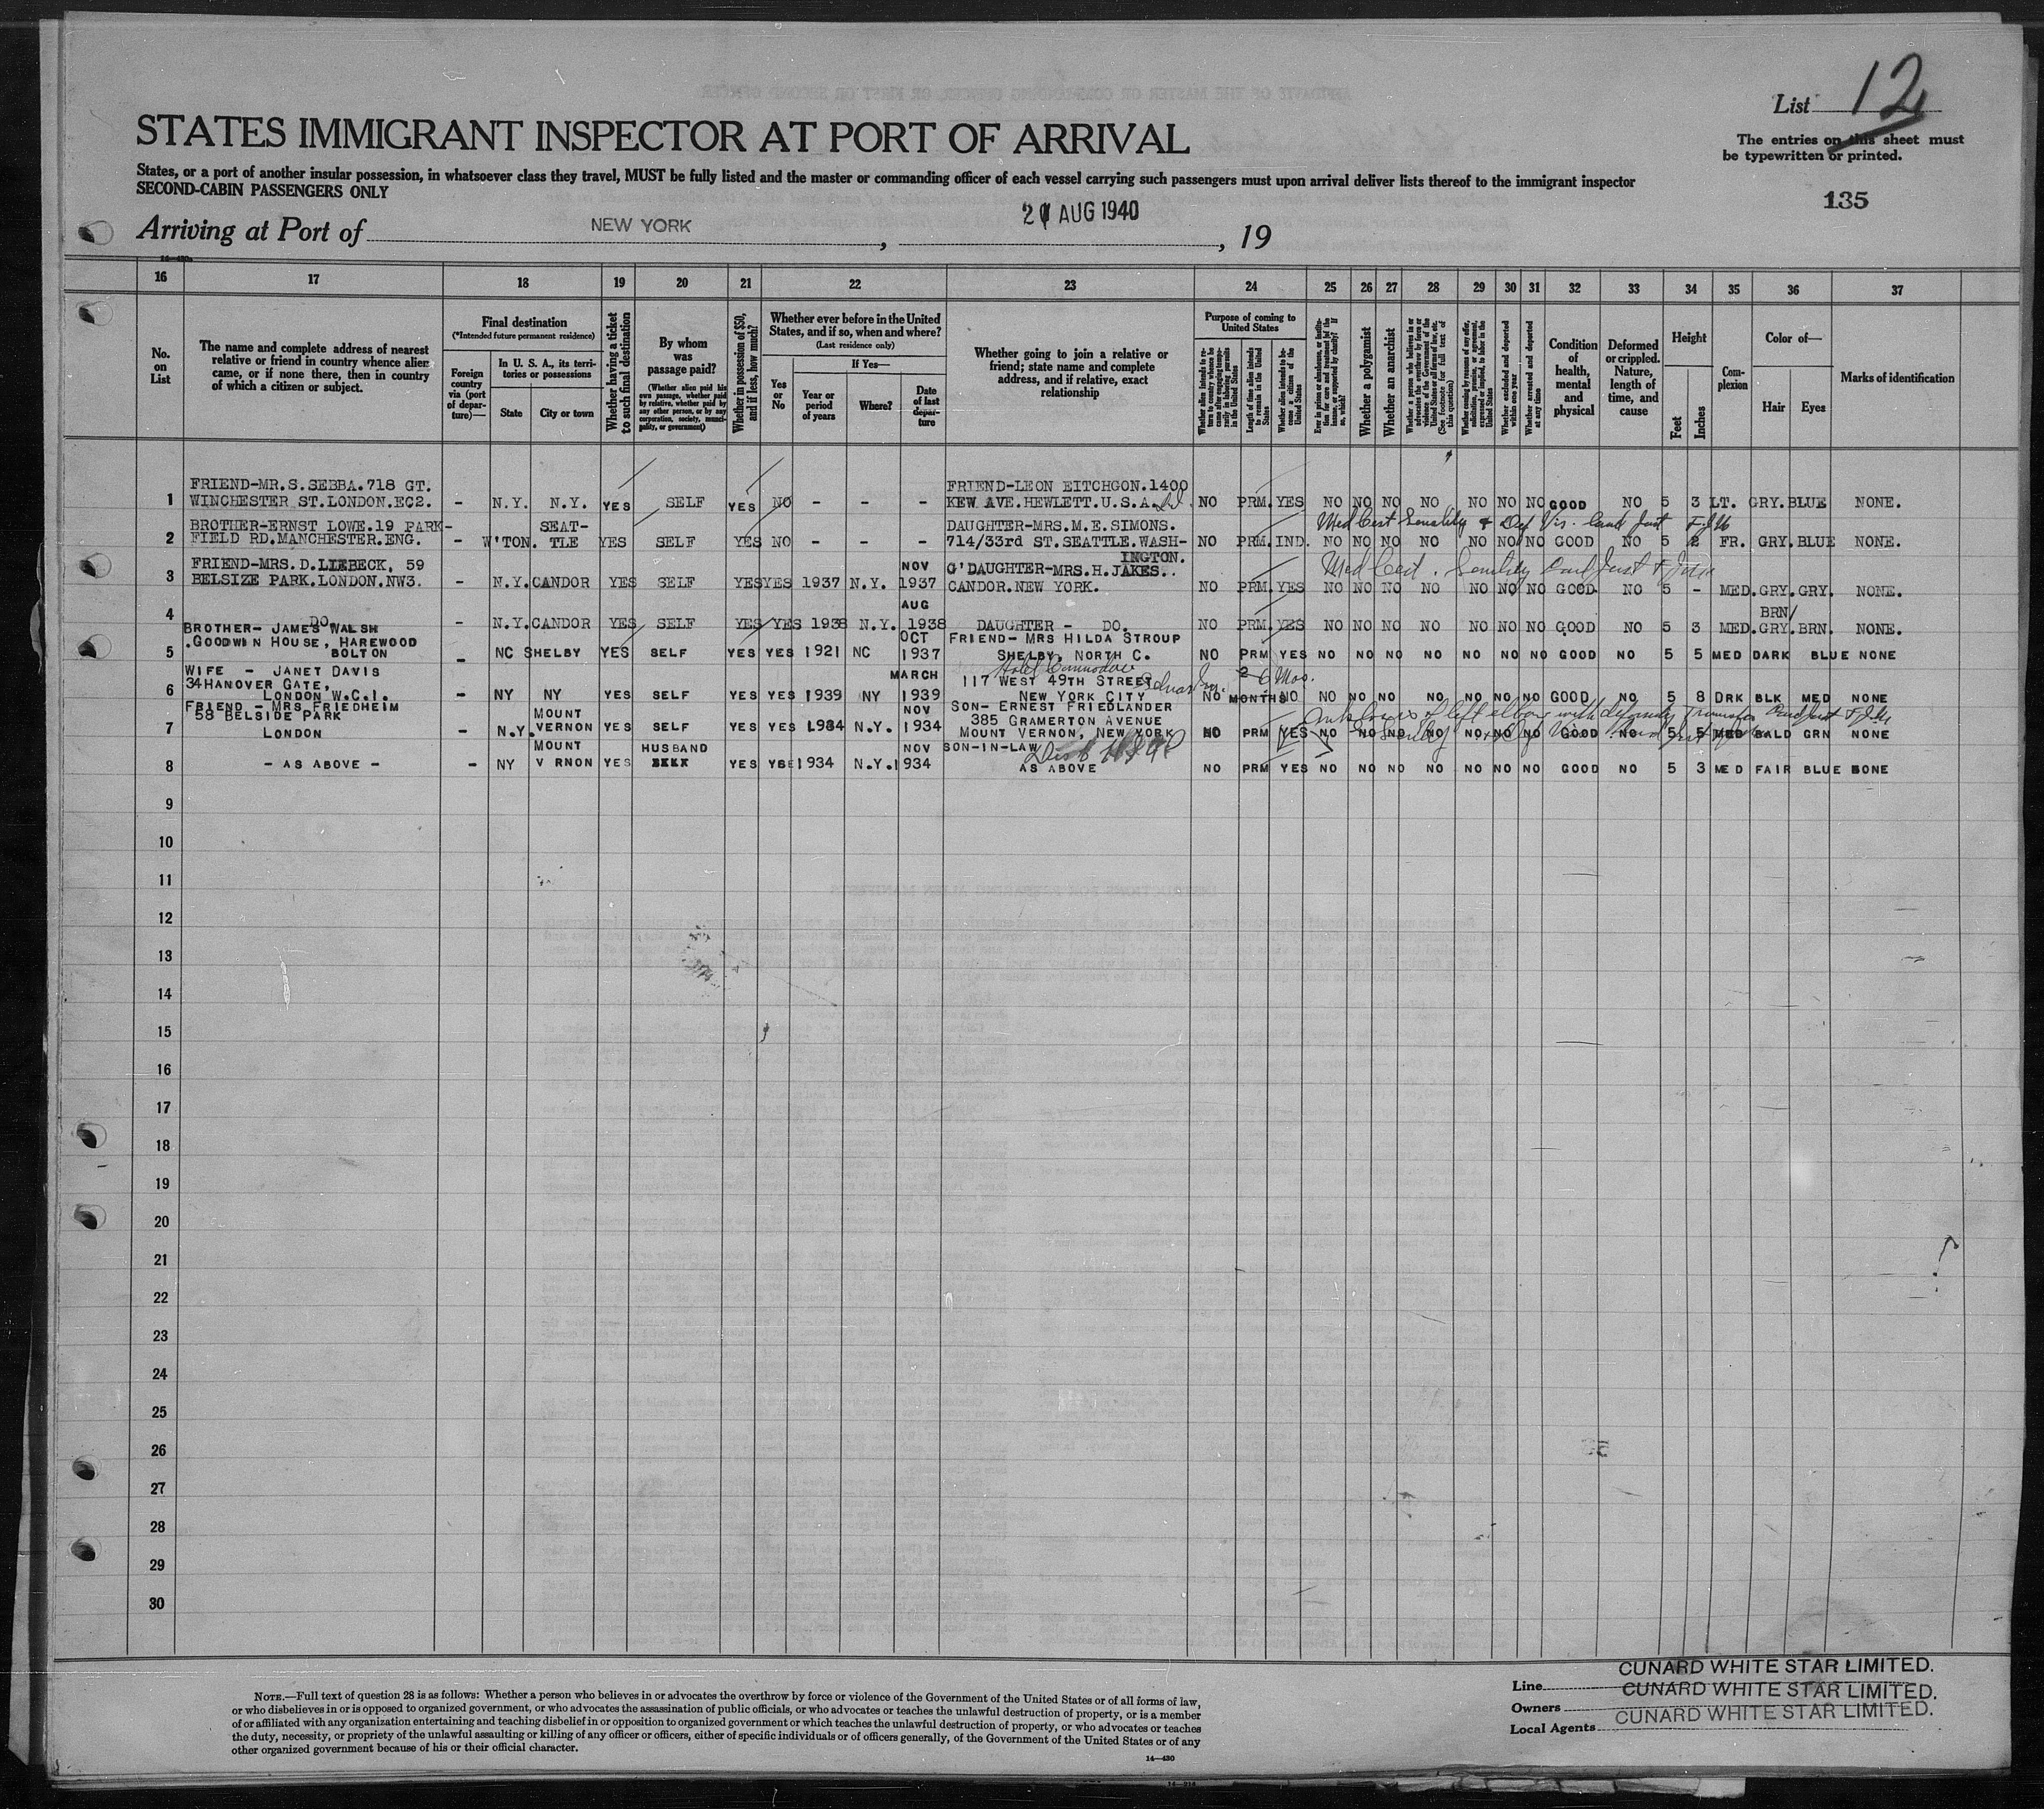 List 12
STATES IMMIGRANT INSPECTOR AT PORT OF ARRIVAL
The entries on this sheet must
be typewritten or printed.
States, or a port of another insular possession, in whatsoever class they travel, MUST be fully listed and the master or commanding officer of each vessel carrying such passengers must upon arrival deliver lists thereof to the immigrant inspector
SECOND-CABIN PASSENGERS ONLY
135
Arriving at Port of NEW YORK, 21 AUG 1940, 19
16 17 18 19 20 21 22 23 24 25 26 27 28 29 30 31 32 33 34 35 36 37
No. on List
The name and complete address of nearest relative or friend in country whence alien came, or if none there, then in country of which a citizen or subject.
Final destination
(*Intended future permanent residence)
Foreign country via (port of departure)—
In U. S. A., its territories or possessions
State
City or town
Whether having a ticket to such final destination
By whom was passage paid?
(Whether alien paid his own passage, whether paid by relative, whether paid by any other person, or by any corporation, society, municipality, or government)
Whether in possession of $50, and if less, how much?
Whether ever before in the United States, and if so, when and where?
(Last residence only)
Yes or No
If Yes—
Year or period of years
Where?
Date of last departure
Whether going to join a relative or friend; state name and complete address, and if relative, exact relationship
Purpose of coming to United States
Length of time alien intends to remain in the United States
Whether alien intends to become a citizen of the United States
Whether a polygamist
Whether an anarchist
Whether excluded and deported within one year
Whether arrested and deported at any time
Condition of health, mental and physical
Deformed or crippled. Nature, length of time, and cause
Height
Feet
Inches
Complexion
Color of—
Hair
Eyes
Marks of identification
FRIEND-MR.S.SEBBA.718 GT. FRIEND-LEON EITCHGON.1400
1 WINCHESTER ST.LONDON.EC2. - N.Y. N.Y. YES SELF YES NO - - - KEW AVE.HEWLETT.U.S.A. NO PRM. YES NO NO NO NO NO NO NO GOOD NO 5 3 LT. GRY. BLUE NONE.
BROTHER-ERNST LOWE.19 PARK- SEAT- DAUGHTER-MRS.M.E.SIMONS. Med Cert Senility & Def Vis.
2 FIELD RD.MANCHESTER.ENG. - W'TON. TLE YES SELF YES NO - - - 714/33rd ST.SEATTLE.WASH- NO PRM. IND. NO NO NO NO NO NO NO GOOD NO 5 2 FR. GRY. BLUE NONE.
INGTON.
FRIEND-MRS.D.LIEBECK, 59 NOV G'DAUGHTER-MRS.H.JAKES. Med Cert. Senility
3 BELSIZE PARK.LONDON.NW3. - N.Y. CANDOR YES SELF YES YES 1937 N.Y. 1937 CANDOR.NEW YORK. NO PRM. YES NO NO NO NO NO NO NO GOOD NO 5 - MED. GRY. GRY. NONE.
AUG BRN/
4 DO. - N.Y. CANDOR YES SELF YES YES 1938 N.Y. 1938 DAUGHTER - DO. NO PRM. YES NO NO NO NO NO NO NO GOOD NO 5 3 MED. GRY. BRN. NONE.
BROTHER- JAMES WALSH
.GOODWIN HOUSE, HAREWOOD OCT FRIEND- MRS HILDA STROUP
5 BOLTON - NC SHELBY YES SELF YES YES 1921 NC 1937 SHELBY, NORTH C. NO PRM YES NO NO NO NO NO NO NO GOOD NO 5 5 MED DARK BLUE NONE
WIFE - JANET DAVIS
34HANOVER GATE, MARCH 117 WEST 49TH STREET 6 Mos.
6 LONDON W.C.I. - NY NY YES SELF YES YES 1939 NY 1939 NEW YORK CITY NO 2 MONTHS NO NO NO NO NO NO NO NO GOOD NO 5 8 DRK BLK MED NONE
FRIEND - MRS FRIEDHEIM NOV SON- ERNEST FRIEDLANDER
58 BELSIDE PARK MOUNT 385 GRAMERTON AVENUE
7 LONDON - N.Y. VERNON YES SELF YES YES 1934 N.Y. 1934 MOUNT VERNON, NEW YORK NO PRM YES NO NO NO NO NO NO NO GOOD NO 5 5 MED BALD GRN NONE
MOUNT HUSBAND NOV SON-IN-LAW
8 - AS ABOVE - - NY V RNON YES YES YES 1934 N.Y. 1934 AS ABOVE NO PRM YES NO NO NO NO NO NO NO GOOD NO 5 3 MED FAIR BLUE NONE
9
10
11
12
13
14
15
16
17
18
19
20
21
22
23
24
25
26
27
28
29
30
NOTE.—Full text of question 28 is as follows: Whether a person who believes in or advocates the overthrow by force or violence of the Government of the United States or of all forms of law,
or who disbelieves in or is opposed to organized government, or who advocates the assassination of public officials, or who advocates or teaches the unlawful destruction of property, or is a member
of or affiliated with any organization entertaining and teaching disbelief in or opposition to organized government or which teaches the unlawful destruction of property, or who advocates or teaches
the duty, necessity, or propriety of the unlawful assaulting or killing of any officer or officers, either of specific individuals or of officers generally, of the Government of the United States or of any
other organized government because of his or their official character.
14—430
Line CUNARD WHITE STAR LIMITED.
Owners CUNARD WHITE STAR LIMITED.
Local Agents CUNARD WHITE STAR LIMITED.